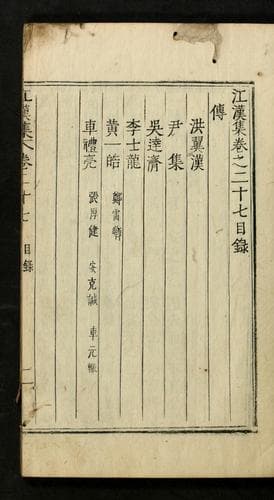 江漢集卷之二十七目錄
傳
洪翼漢
尹集
吳達濟
李士龍
黃一皓
車禮亮 張厚健 安克諴 車元轍
江漢集 卷二十七 目錄